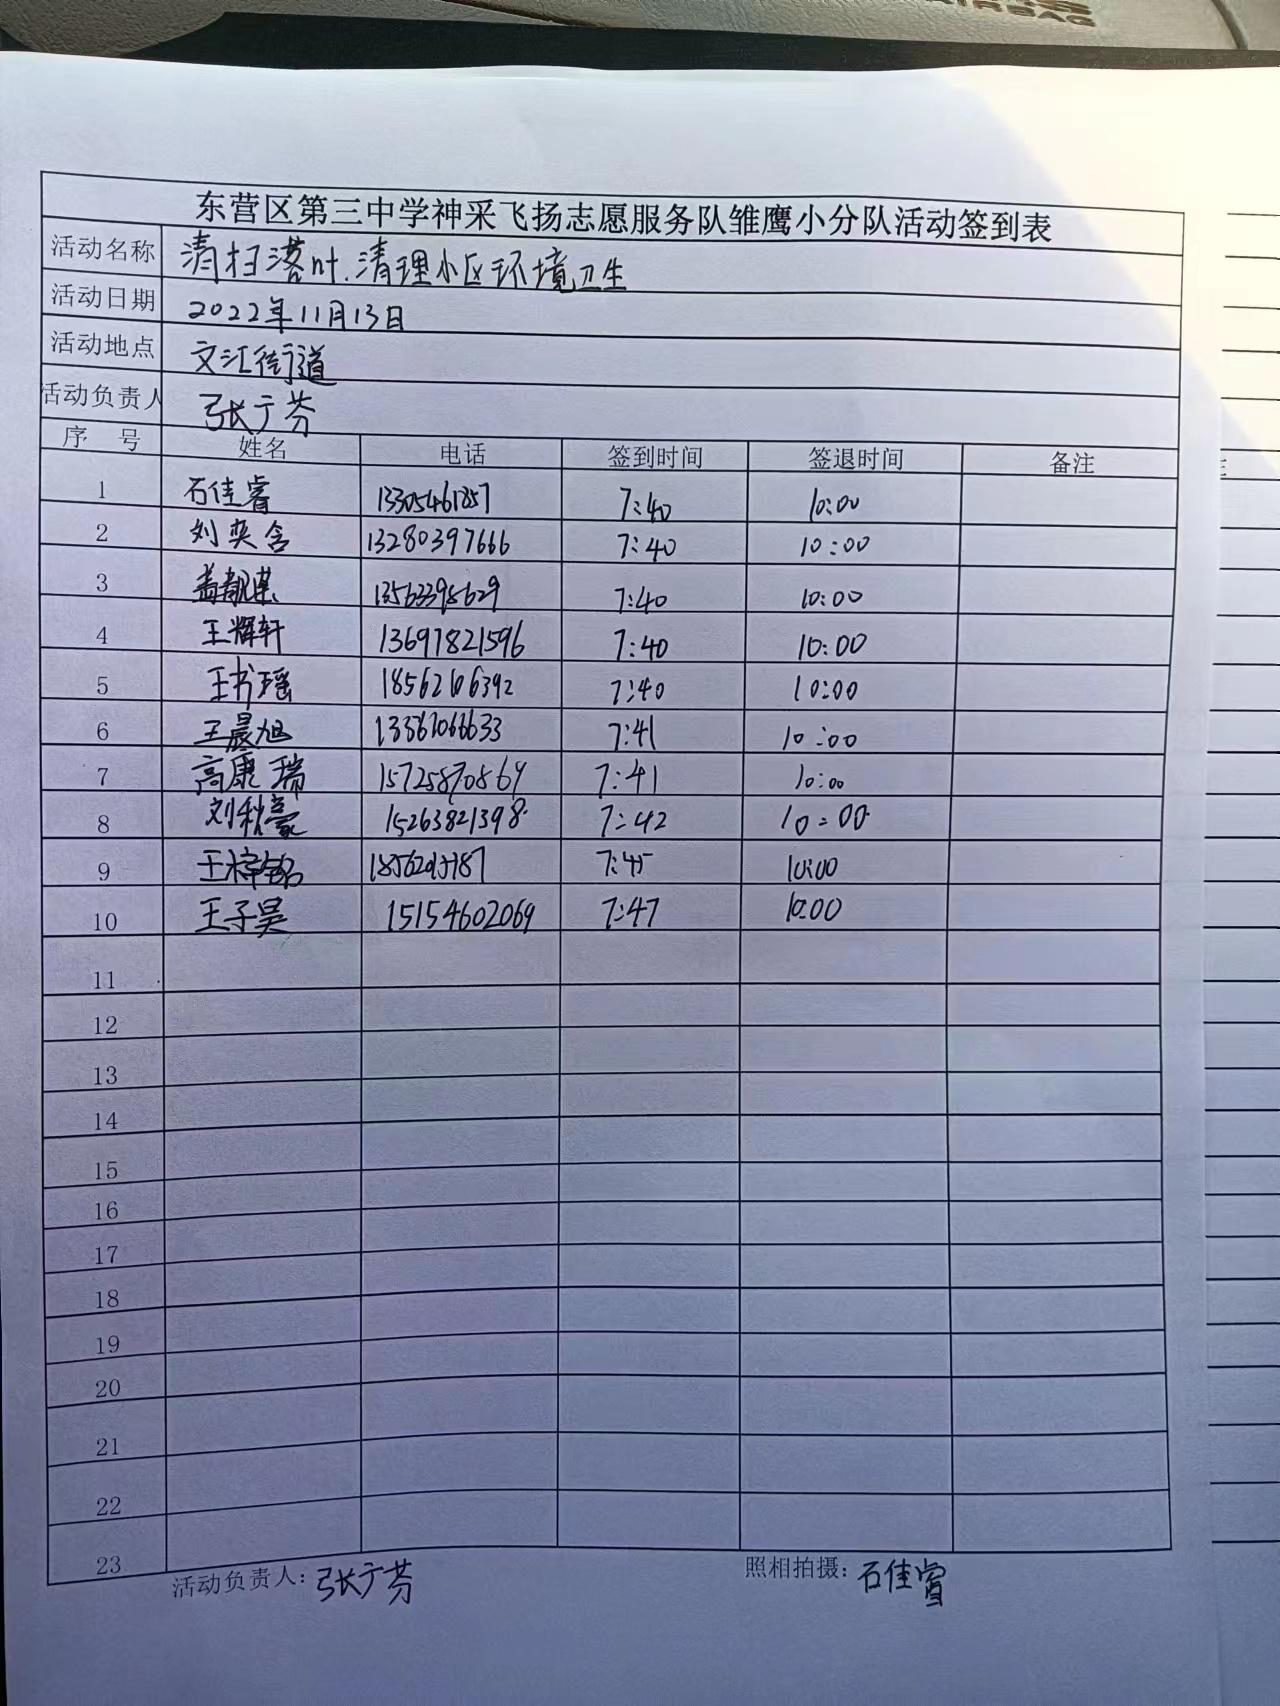 AIRBAG
东营区第三中学神采飞扬志愿服务队雏鹰小分队活动签到表
活动名称 清扫落叶.清理小区环境卫生
活动日期 2022年11月13日
活动地点 文汇街道
活动负责人 张广芬
序号 姓名 电话 签到时间 签退时间 备注
1 石佳睿 13305461857 7:40 10:00
2 刘奕含 13280397666 7:40 10:00
3 13563395629 7:40 10:00
4 王辉轩 13697821596 7:40 10:00
5 王书瑶 18562106392 7:40 10:00
6 王晨旭 7:41 10:00
7 高康瑞 15725870869 7:41 10:00
8 刘秋豪 15263821398 7:42 10:00
9 王梓铭 7:45 10:00
10 王子昊 15154602069 7:47 10:00
11
12
13
14
15
16
17
18
19
20
21
22
23
活动负责人：张广芬 照相拍摄：石佳睿